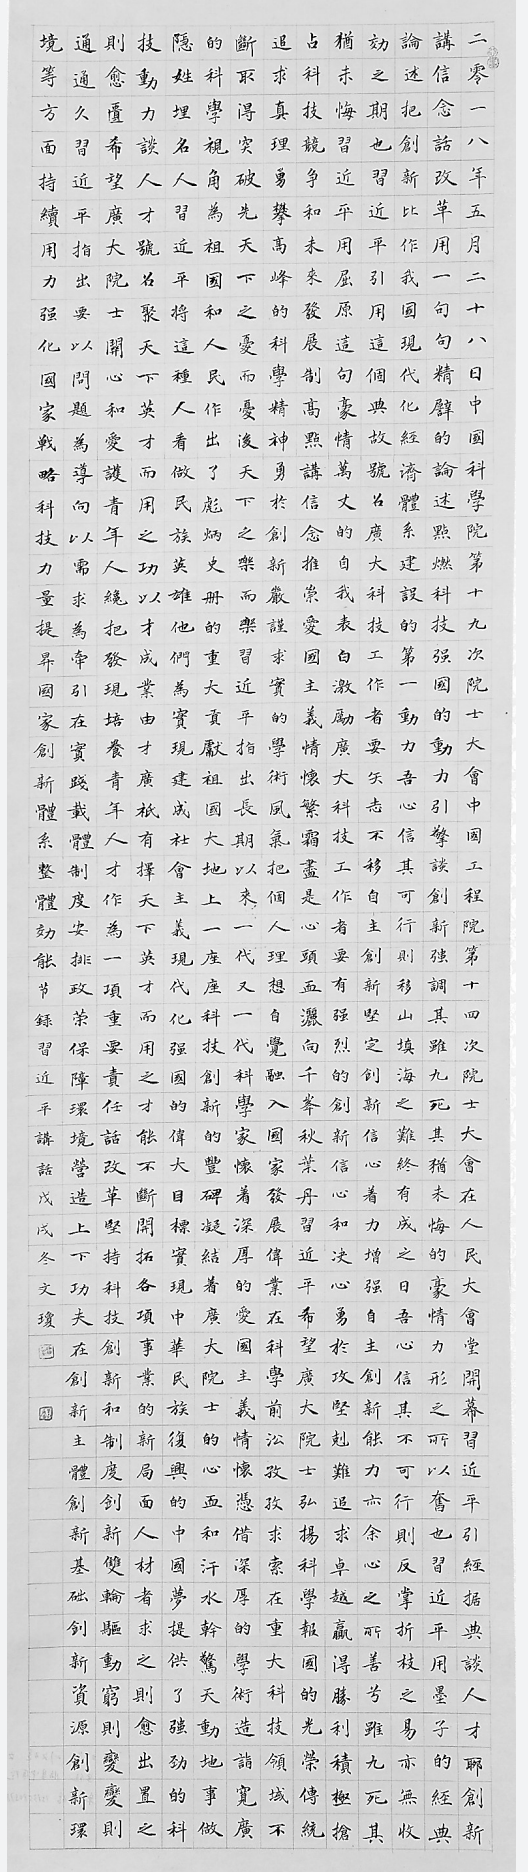 二零一八年五月二十八日中國科學院第十九次院士大會中國工程院第十四次院士大會在人民大會堂開幕習近平引經据典談人才聊創新
講信念話改革用一句句精辟的論述點燃科技强國的動力引擎談創新强調其雖九死其猶未悔的豪情力形之所以奮也習近平用墨子的經典
論述把創新比作我國現代化經濟體系建設的第一動力吾心信其可行則移山填海之難終有成之日吾心信其不可行則反掌折枝之易亦無收
効之期也習近平引用這個典故號召廣大科技工作者要矢志不移自主創新堅定創新信心着力增强自主創新能力亦余心之所善兮雖九死其
猶未悔習近平用屈原這句豪情萬丈的自我表白激勵廣大科技工作者要有强烈的創新信心和决心勇於攻堅剋難追求卓越贏得勝利積極搶
占科技競争和未來發展制高點講信念推崇愛國主義情懷繁霜盡是心頭血灑向千峯秋葉丹習近平希望廣大院士弘揚科學報國的光榮傳統
追求真理勇攀高峰的科學精神勇於創新嚴謹求實的學術風氣把個人理想自覺融入國家發展偉業在科學前沿孜孜求索在重大科技領域不
斷取得突破先天下之憂而憂後天下之樂而樂習近平指出長期以來一代又一代科學家懷着深厚的愛國主義情懷憑借深厚的學術造詣寬廣
的科學視角為祖國和人民作出了彪炳史册的重大貢獻祖國大地上一座座科技創新的豐碑凝結着廣大院士的心血和汗水幹驚天動地事做
隱姓埋名人習近平將這種人看做民族英雄他們為實現建成社會主義現代化强國的偉大目標實現中華民族復興的中國夢提供了强劲的科
技動力談人才號召聚天下英才而用之功以才成業由才廣祇有擇天下英才而用之才能不斷開拓各項事業的新局面人材者求之則愈出置之
則愈匱希望廣大院士開心和愛護青年人纔把發現培養青年人才作為一項重要責任話改革堅持科技創新和制度創新雙輪驅動窮則變變則
通通久習近平指出要以問題為導向以需求為牽引在實踐載體制度安排政策保障環境營造上下功夫在創新主體創新基础創新資源創新環
境等方面持續用力强化國家戰略科技力量提昇國家創新體系整體効能节録習近平講話戊戌冬文瓊